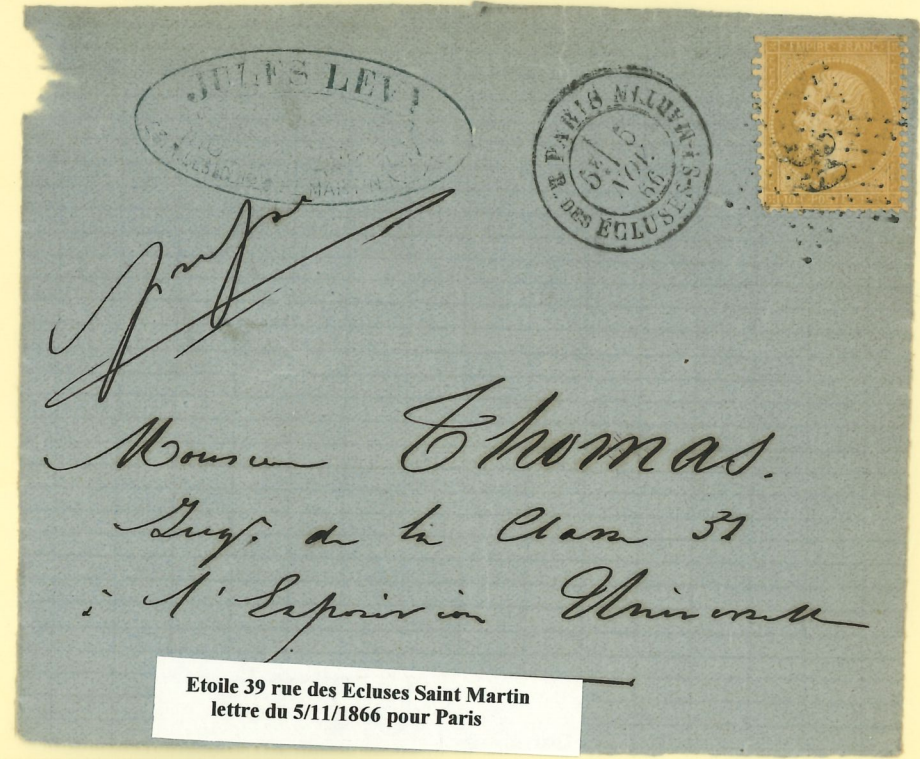 JULES LEVY
ST MARTIN
PARIS
R. DES ÉCLUSES-ST-MARTIN
5E
5
NOV
66
EMPIRE FRANC
39
Monsieur Thomas.
Ingr. de la Classe 31
à l'Exposition Universelle
Etoile 39 rue des Ecluses Saint Martin
lettre du 5/11/1866 pour Paris